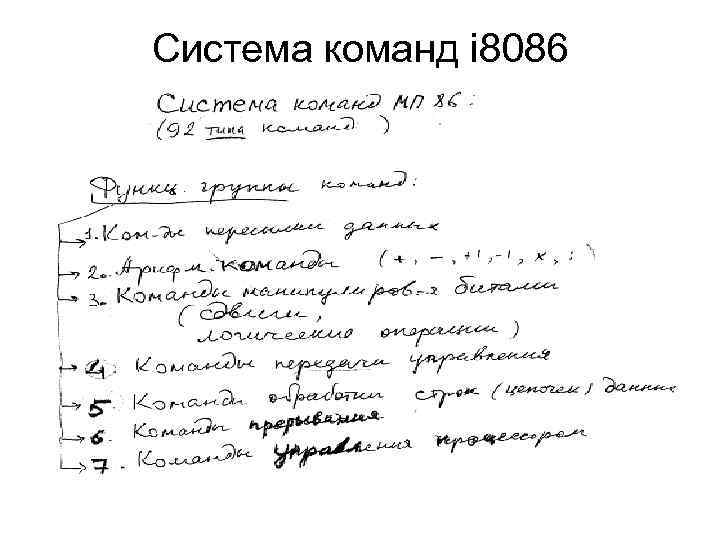 Система команд i8086
Система команд МП 86:
(92 типа команд)
Функц. группы команд:
1. Ком-ды пересылки данных
2. Арифм. команды (+, -, +1, -1, x, :)
3. Команды манипулиров-я битами
(сдвиги,
логические операции)
4. Команды передачи управления
5. Команды обработки строк (цепочек) данных
6. Команды прерывания
7. Команды управления процессором